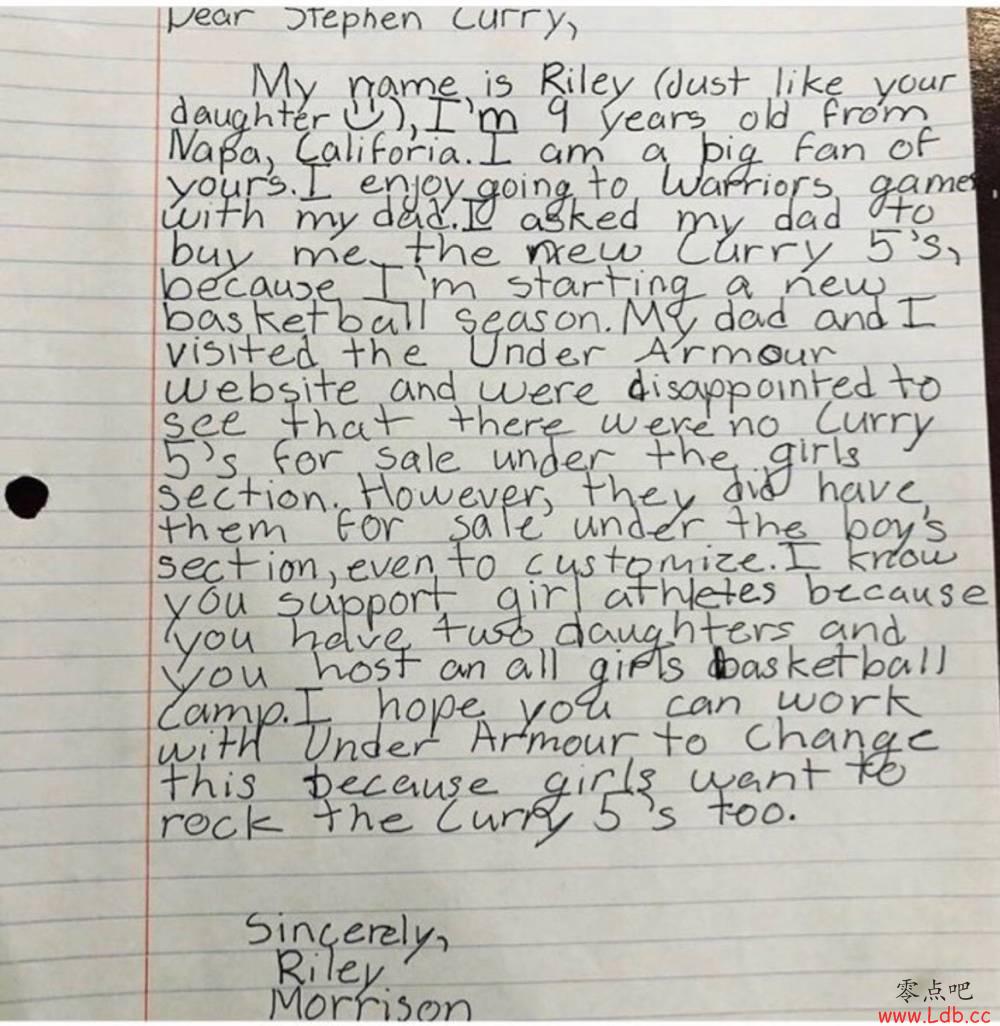 Dear Stephen Curry,
My name is Riley (Just like your
daughter), I'm 9 years old from
Napa, Califoria. I am a big fan of
yours. I enjoy going to Warriors games
with my dad. I asked my dad to
buy me the new Curry 5's,
because I'm starting a new
basketball season. My dad and I
visited the Under Armour
website and were disappointed to
see that there were no Curry
5's for sale under the girls
section. However, they did have
them for sale under the boy's
section, even to customize. I know
you support girl athletes because
you have two daughters and
you host an all girls basketball
camp. I hope you can work
with Under Armour to change
this because girls want to
rock the Curry 5's too.
Sincerely,
Riley
Morrison
零点吧
www.Ldb.cc